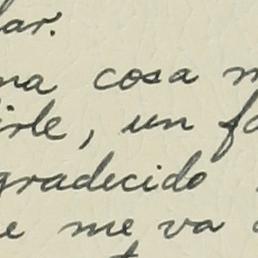 lar.
na cosa m
irle, un fa
gradecido
e me va